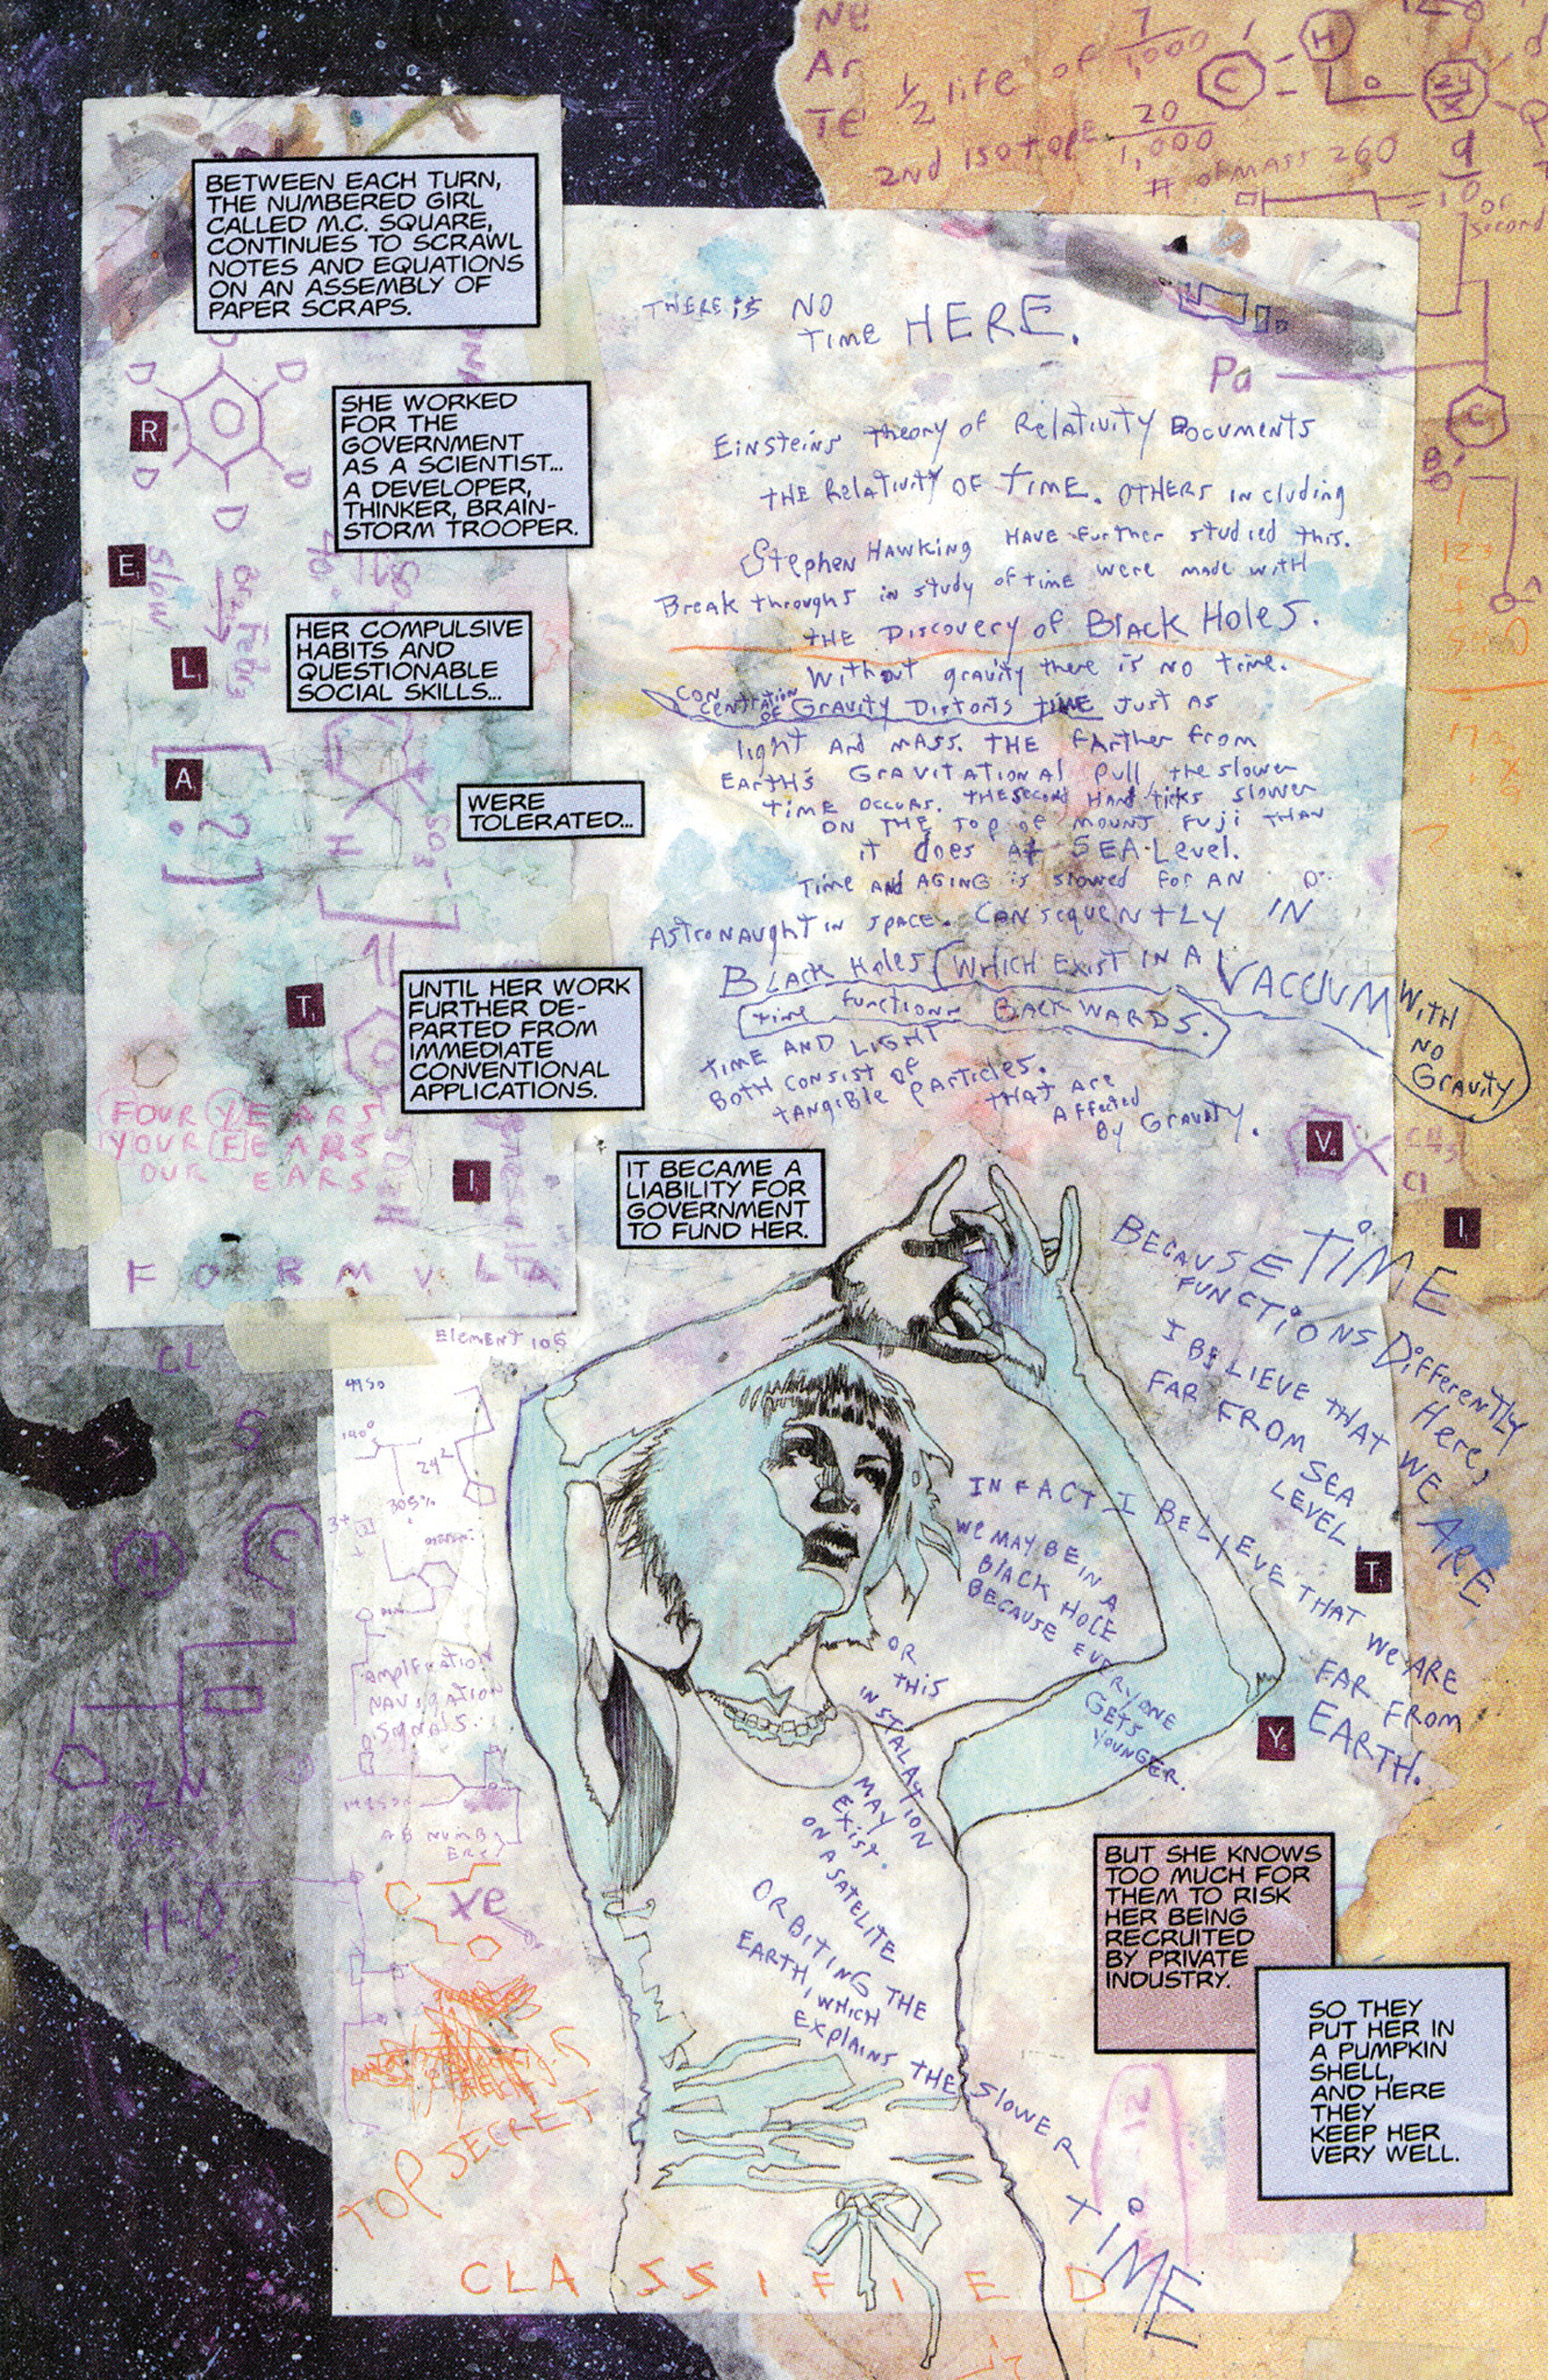 Ne
Ar
Te
1/2 life of 7/1,000
2nd isotope 20/1,000
# of MASS 260
C
H
24/X
9/10 or
second
BETWEEN EACH TURN,
THE NUMBERED GIRL
CALLED M.C. SQUARE,
CONTINUES TO SCRAWL
NOTES AND EQUATIONS
ON AN ASSEMBLY OF
PAPER SCRAPS.
THERE is NO
TIME HERE.
Pa
SHE WORKED
FOR THE
GOVERNMENT
AS A SCIENTIST...
A DEVELOPER,
THINKER, BRAIN-
STORM TROOPER.
D
D
D
D
D
R
E
L
A
T
I
V
I
T
Y
Slow
HER COMPULSIVE
HABITS AND
QUESTIONABLE
SOCIAL SKILLS...
WERE
TOLERATED...
[?]
H
SO3-
UNTIL HER WORK
FURTHER DE-
PARTED FROM
IMMEDIATE
CONVENTIONAL
APPLICATIONS.
FOUR YEARS
YOUR FEARS
OUR EARS
FORMVLA
Einsteins theory of Relativity Documents
THE Relativity OF TIME. OTHERS Including
Stephen HAWKING HAVE further studied this.
Break throughs in study of time were made with
THE Discovery of Black Holes.
Without gravity there is NO time.
CONCENTRATION OF GRAVITY Distorts TIME Just AS
light AND MASS. THE farther from
EARTH'S GRAVITATIONAl Pull, the slower
TIME OCCURS. THE SECOND HAND ticks slower
ON THE TOP OF MOUNT FUJI THAN
it does At SEA-Level.
Time AND AGING is slowed FOR AN
AstroNAught IN SPACE. CONSEQUENTLY IN
BLACK Holes (WHICH EXIST IN A VACUUM
WITH
NO
GRAVITY
time functions BACKWARDS.
TIME AND LIGHT
BOTH CONSIST OF
tANgible PARTICLES.
THAT ARE
AFFected
By GRAVITY.
CH3
Cl
IT BECAME A
LIABILITY FOR
GOVERNMENT
TO FUND HER.
BECAUSE TIME
FUNCTIONS DiffereNTLY
Here,
I BELIEVE THAT WE ARE
FAR FROM SEA
LEVEL
IN FACT I BELIEVE THAT WE ARE
FAR FROM
EARTH.
We MAY BE IN A
BlACK HOLE
BECAUSE EVERYONE
GETS
YOUNGER.
OR
THIS
INSTALATION
MAY
EXIST
ON A SATELITE
ORBITING THE
EARTH, WHICH
EXPlAINS THE SlOWER
TIME
Element 106
4950
140°
24²
305%
CL
S
H
C
AMPlFICATION
NAVIGATION
SIGNALS.
ZN
AB NUMBER
Xe
TOP SECRET
CLASSIFIED
BUT SHE KNOWS
TOO MUCH FOR
THEM TO RISK
HER BEING
RECRUITED
BY PRIVATE
INDUSTRY.
SO THEY
PUT HER IN
A PUMPKIN
SHELL,
AND HERE
THEY
KEEP HER
VERY WELL.